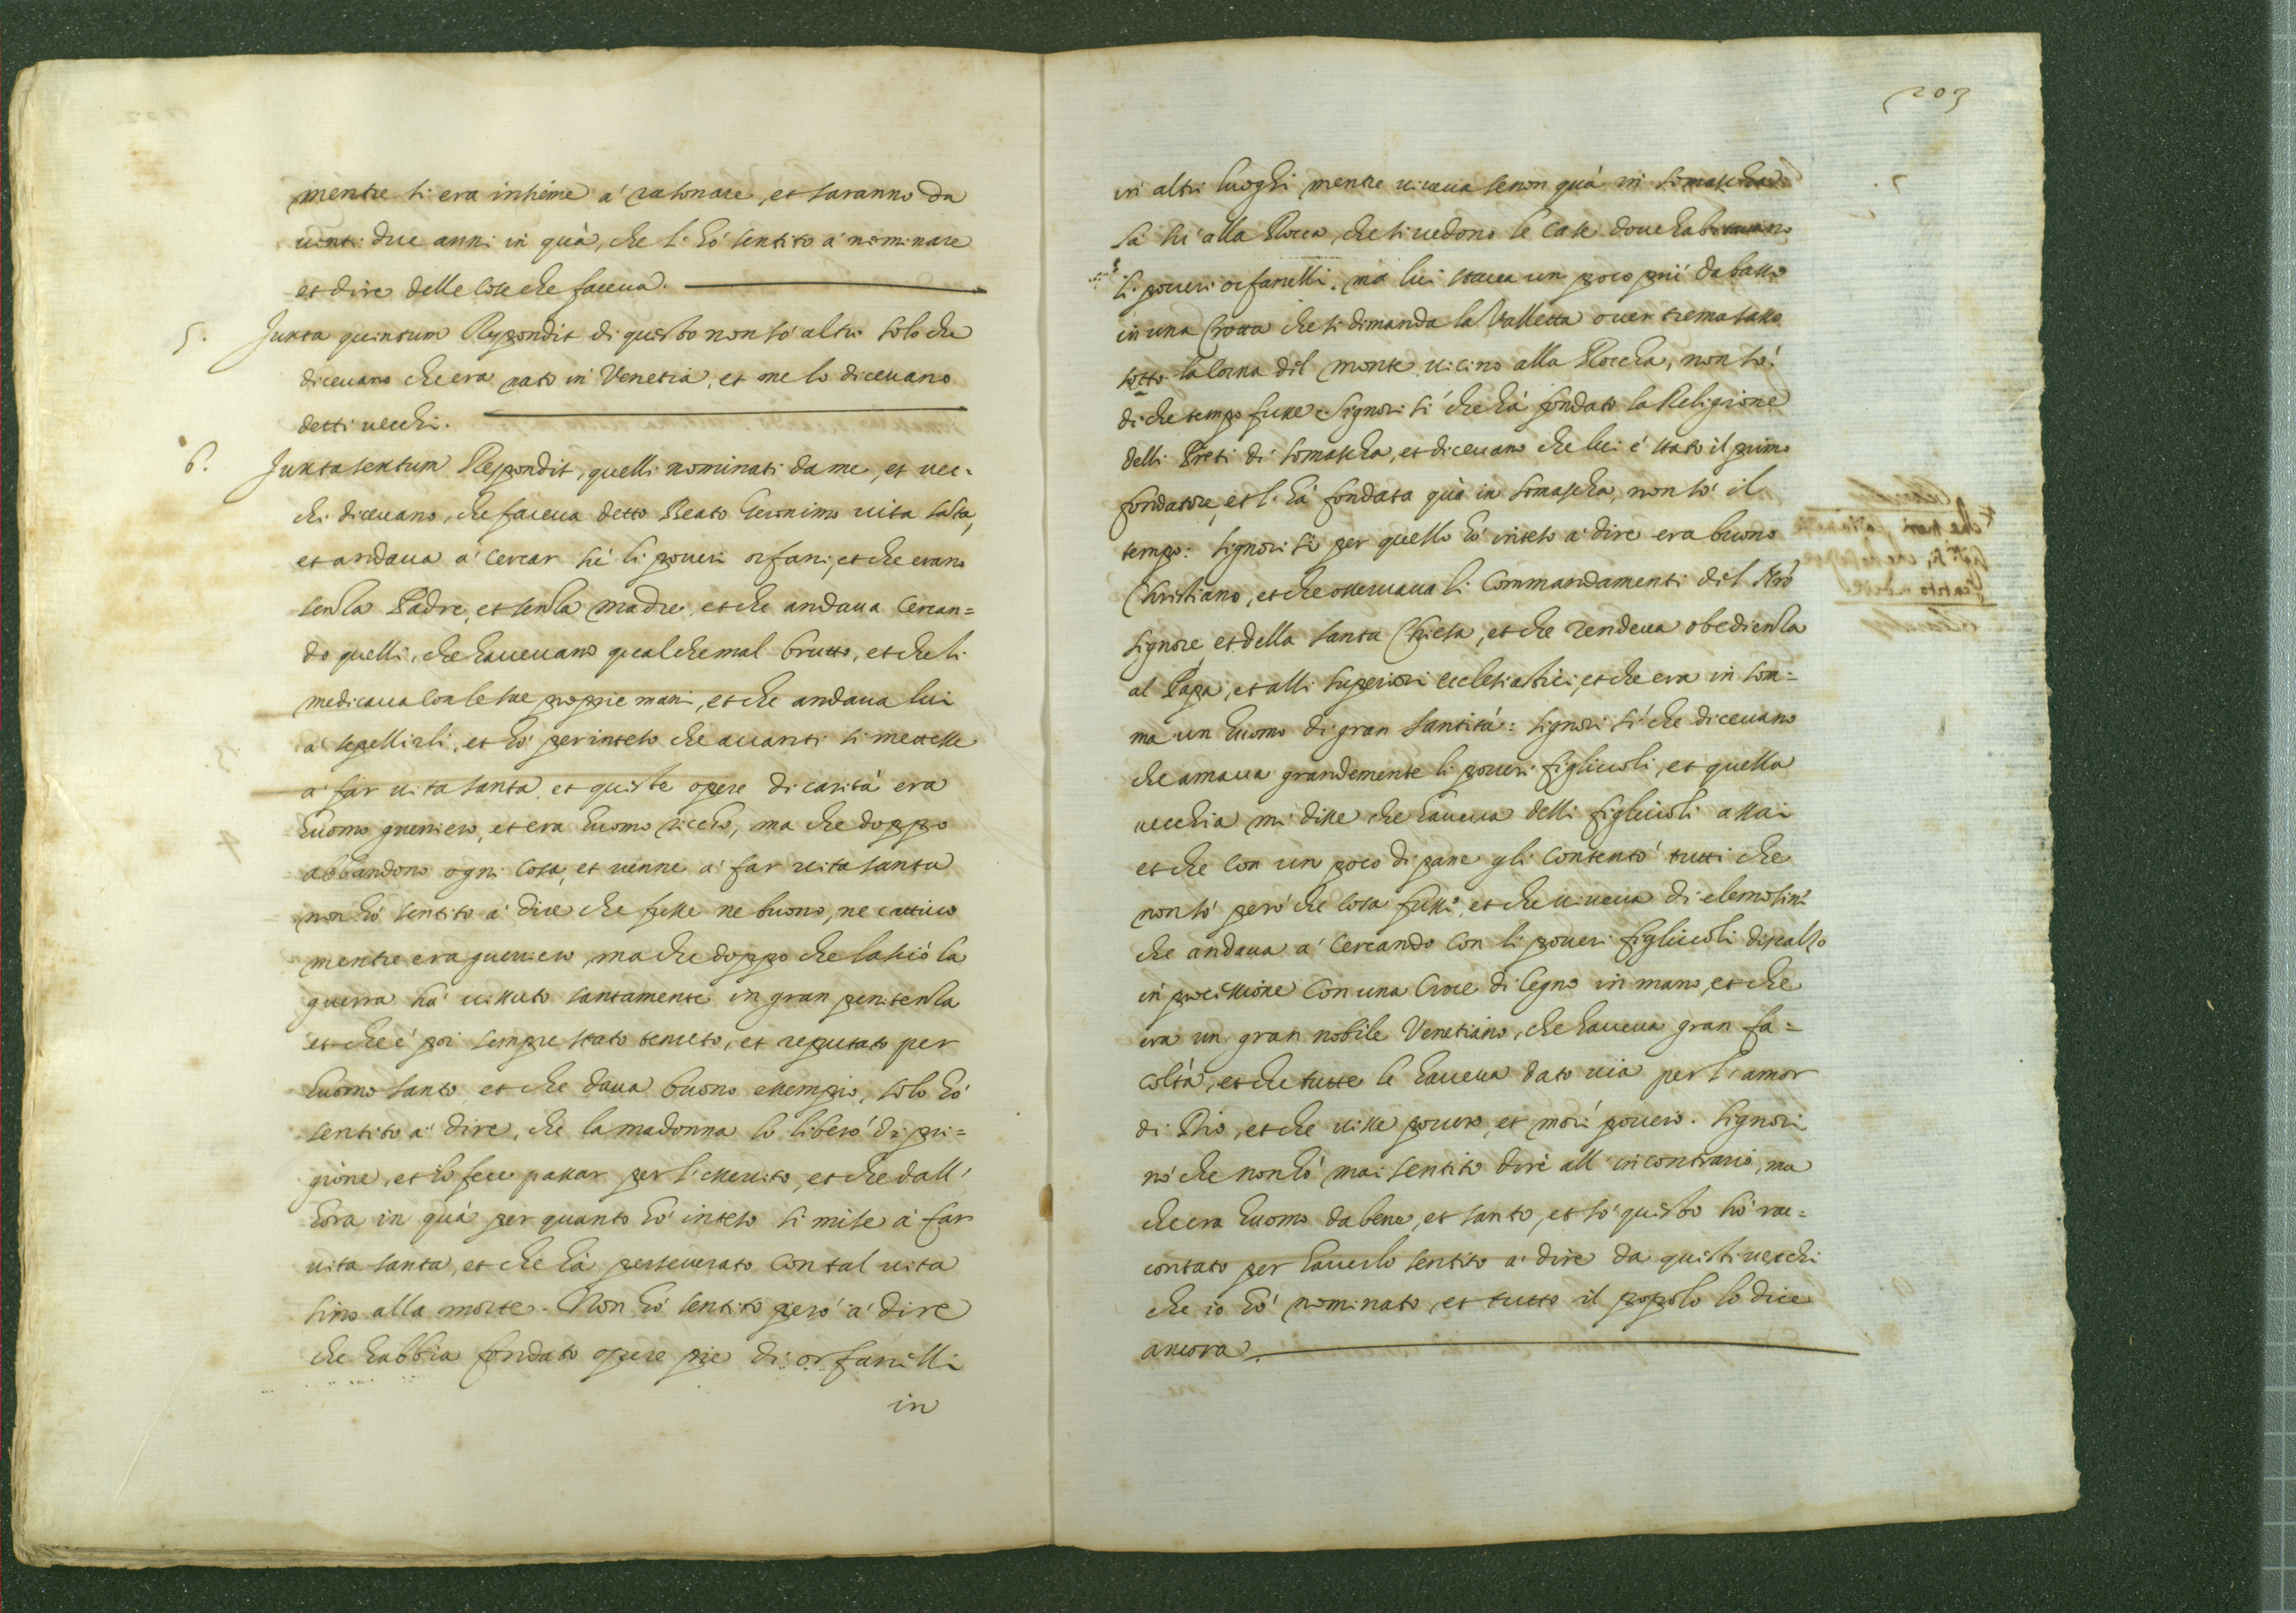 mentre si era insieme à rasonare, et saranno da
uinti due anni in quà, che l'hò sentito à nominare
et dire delle cose che faceua.
5. Juxta quintum Respondit di questo non sò altri solo che
diceuano che era nato in Venetia, et me lo diceuano
detti uecchi.
6. Juxta sextum Respondit, quelli nominati da me, et uec=
chi diceuano, che faceua detto Beato Gieronimo uita santa,
et andaua à cercar sù li poueri orfani, et che erano
senza Padre, et senza madre, et che andaua cercan=
do quelli, che haueuano qualche mal brutto, et che li
medicaua con le sue proprie mani, et che andaua lui
à sepellirli, et hò per inteso che auanti si mettesse
à far uita santa, et queste opere di carità era
huomo gueriero, et era huomo riccho, ma che doppo
abbandonò ogni cosa, et uenne à far uita santa
non hò sentito à dire che fusse ne buono, ne cattiuo
mentre era gueriero, ma che doppo che lasciò la
guerra hà uissuto santamente in gran penitenza
et che è poi sempre stato tenuto, et reputato per
huomo santo, et che daua buono essempio, solo hò
sentito à dire, che la madonna lo liberò di pri=
gione, et lo fece passar per l'essercito, et che dall'
hora in quà per quanto hò inteso si mise à far
uita santa, et che hà perseuerato con tal uita
sino alla morte. Non hò sentito però à dire
che habbia fondato opere pie di orfanelli
in
203
in altri luoghi mentre uiueua se non quà in Somascha
là sù alla Rocca, che si uedono le case doue habitauano
li poueri orfanelli, ma lui staua un poco più da basso
in una Grotta che si dimanda la Valletta ouer tremasasso
sotto la corna del monte uicino alla Roccha, non sò
di che tempo fusse: Signori sì che hà fondato la Religione
delli Preti di Somascha, et diceuano che lui è stato il primo
fondatore, et l'hà fondata quà in Somascha, non sò il
tempo: Signori sì per quello hò inteso à dire era buono
Christiano, et che osseruaua li Commandamenti del Nrò
Signore, et della Santa Chiesa, et che rendeua obedienza
al Papa, et alli superiori ecclesiastici, et che era in som=
ma un huomo di gran santità: Signori sì che diceuano
che amaua grandemente li poueri figliuoli, et quella
uecchia mi disse che haueua delli figliuoli assai
et che con un poco di pane gli contentò tutti che
non sò però che cosa fusse, et che uiueua di elemosine
che andaua à cercando con li poueri figliuoli discalzo
in processione con una Croce di legno in mano, et che
era un gran nobile Venetiano, che haueua gran fa=
coltà, et che tutte le haueua dato uia per l'amor
di Dio, et che uisse pouero, et morì pouero. Signori
nò che non hò mai sentito dire all'incontrario, ma
che era huomo da bene, et santo, et sò questo hò rac=
contato per hauerlo sentito à dire da questi uecchi
che io hò nominato, et tutto il popolo lo dice
ancora.